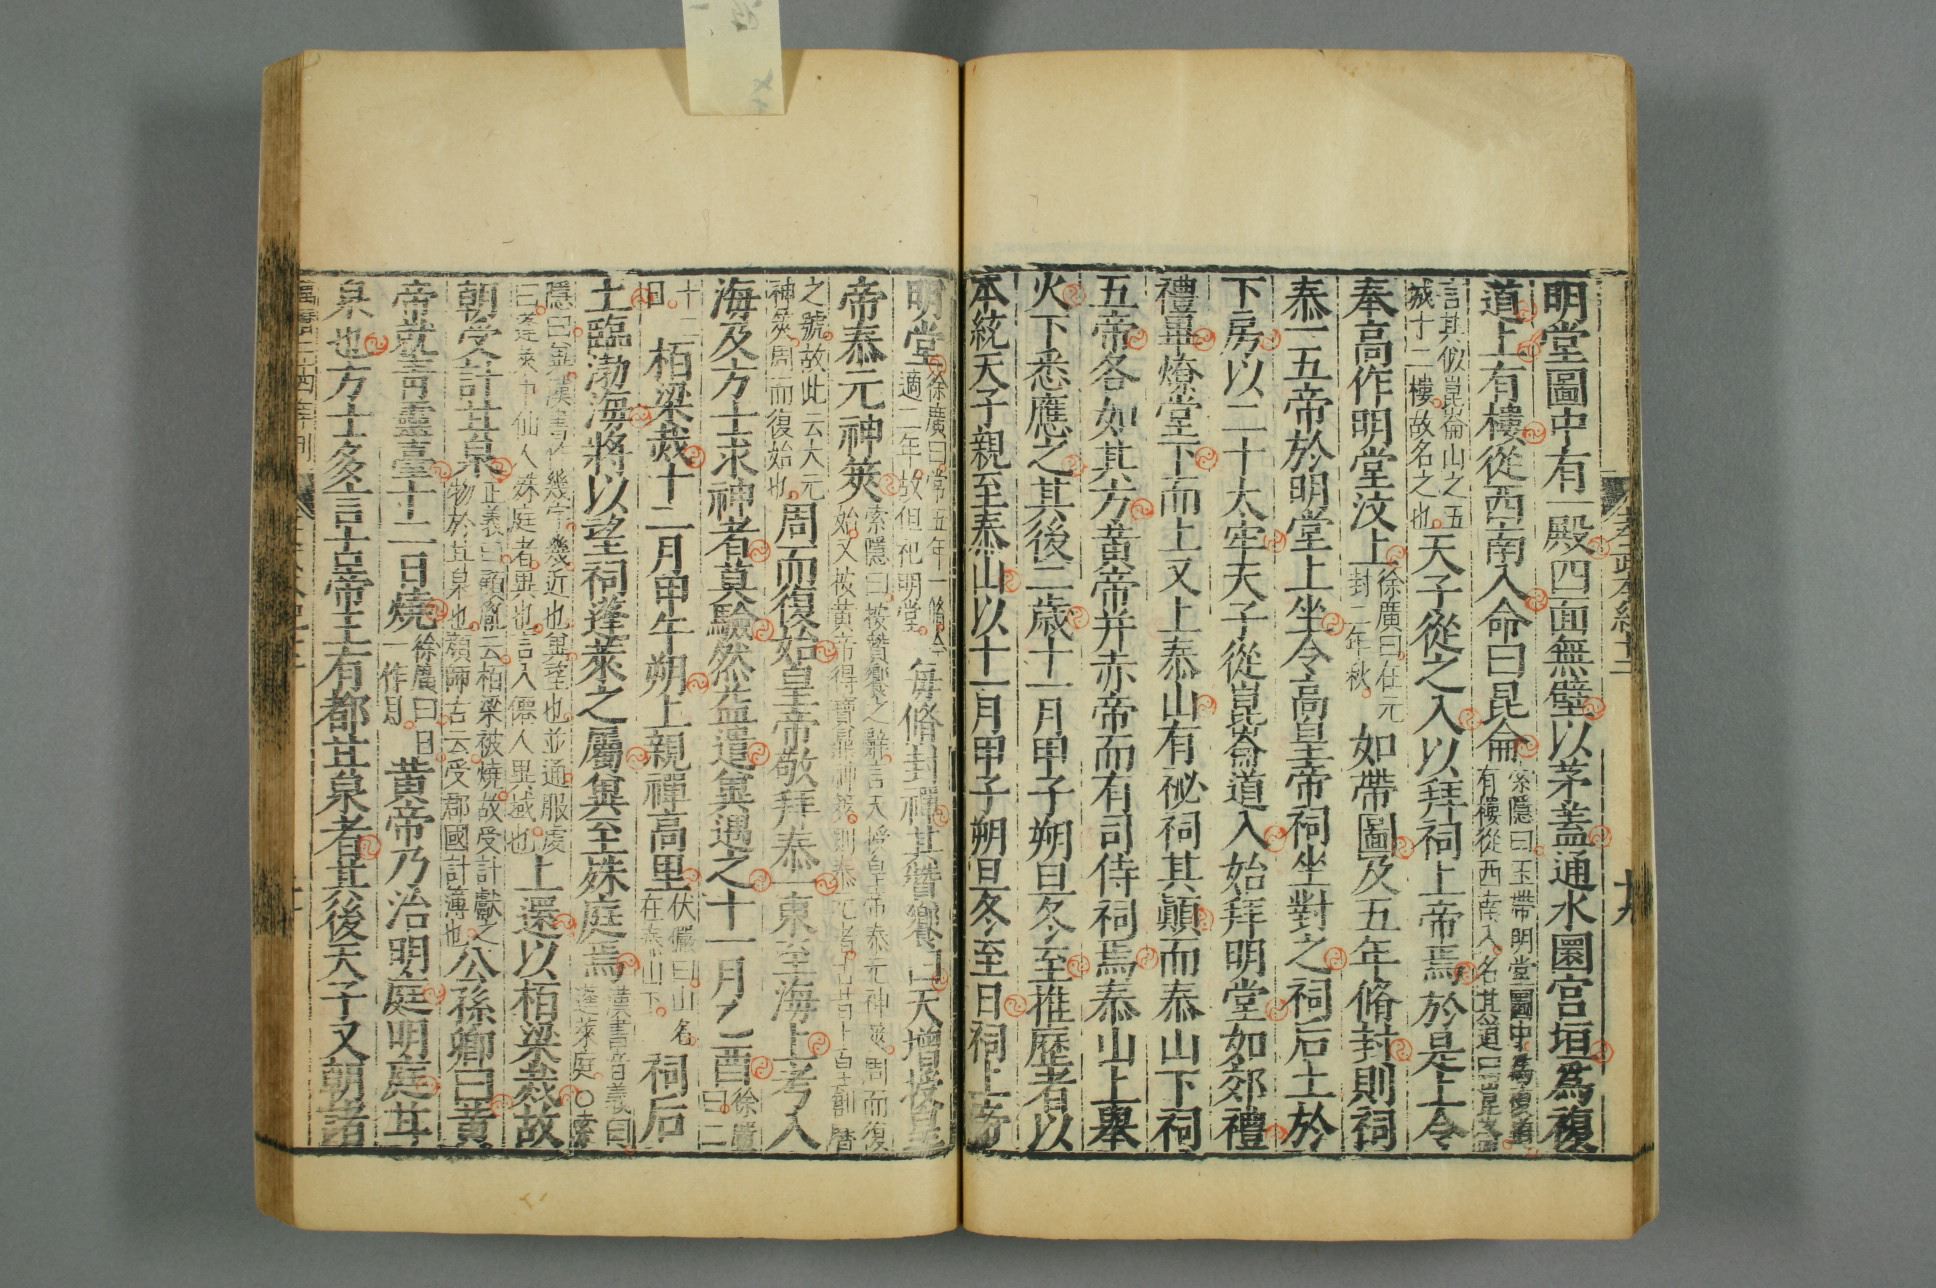 明堂圖中有一殿四面無壁以茅蓋通水圜宮垣爲複
道上有樓從西南入命曰昆侖索隱曰玉帶明堂圖中爲複道有樓從西南入名其道曰崑崙
言其似崑崙山之五城十二樓故名之也天子從之入以拜祠上帝焉於是上令
奉高作明堂汶上徐廣曰在元封二年秋如帶圖及五年脩封則祠
泰一五帝於明堂上坐令高皇帝祠坐對之祠后土於
下房以二十太牢天子從崑崙道入始拜明堂如郊禮
禮畢燎堂下而上又上泰山有祕祠其顚而泰山下祠
五帝各如其方黃帝并赤帝而有司侍祠焉泰山上舉
火下悉應之其後二歲十一月甲子朔旦冬至推歷者以
本統天子親至泰山以十一月甲子朔旦冬至日祠上帝
明堂徐廣曰常五年一脩今適二年故但祀明堂每脩封禪其贊饗曰天增授皇
帝泰元神筴索隱曰按贊饗之辭言天授皇帝泰元神筴周而復始又被黃帝得寶鼎神筴則泰元者
之號故此云太元神筴周而復始也周而復始皇帝敬拜泰一東至海上考入
海及方士求神者莫驗然益遣冀遇之十一月乙酉徐廣曰二
十二日柏梁烖十二月甲午朔上親禪高里伏儼曰山名在泰山下祠后
土臨渤海將以望祠蓬萊之屬冀至殊庭焉漢書音義曰蓬萊庭○索
隱曰冀漢書作幾幾近也冀望也並通服虔曰蓬萊中仙人殊庭者異也言入僊人異域也上還以柏梁烖故
朝受計甘泉正義曰顏胤云柏梁被燒故受計獻之物於甘泉也顏師古云受郡國計簿也公孫卿曰黃
帝就靑靈臺十二日燒徐廣曰日一作月黃帝乃治明庭明庭甘
泉也方士多言古帝王有都甘泉者其後天子又朝諸
孝武本紀十二
十九